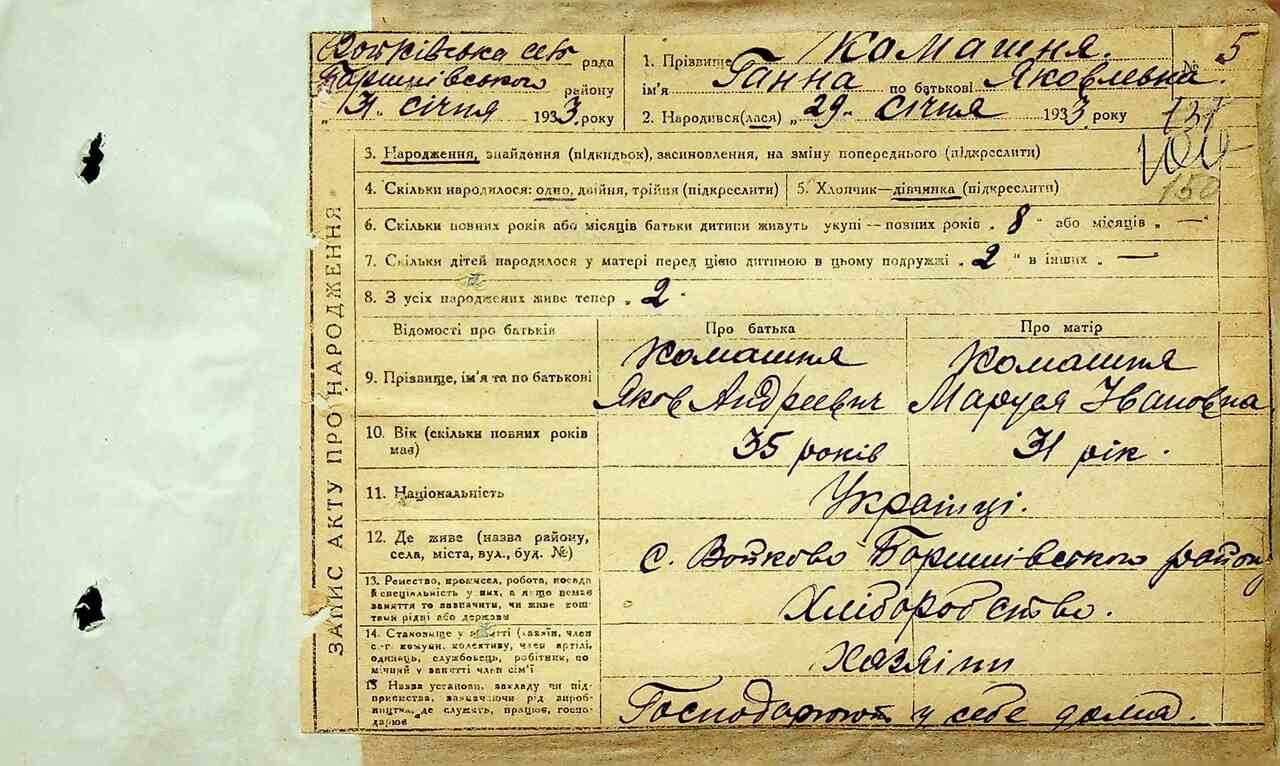 Войківська сек рада
Баришівського району
„31„ січня 1933 року
1. Прізвище Комашня. № 5
ім'я Ганна по батькові Яковлевна.
2. Народився(лася) „29„ січня 1933 року
131
150
3. Народження, знайдення (підкидьок), засиновлення, на зміну попереднього (підкреслити)
4. Скільки народилося: одно, двійня, трійня (підкреслити)
5. Хлопчик—дівчинка (підкреслити)
6. Скільки повних років або місяців батьки дитини живуть укупі — повних років „ 8 " або місяців „ —"
7. Скільки дітей народилося у матері перед цією дитиною в цьому подружжі „ 2 " в інших „ —"
8. З усіх народжених живе тепер „ 2 "
ЗАПИС АКТУ ПРО НАРОДЖЕННЯ
Відомості про батьків
Про батька
Про матір
9. Прізвище, ім'я та по батькові
Комашня
Яков Андреевич
Комашня
Маруся Івановна
10. Вік (скільки повних років
має)
35 років
31 рік.
11. Національність
Українці.
12. Де живе (назва району,
села, міста, вул., буд. №)
с. Войково Баришівського району
13. Ремество, промисел, робота, посада
й спеціальність у них, а якщо немає
заняття то зазначити, чи живе кош-
тами рідні або держави
Хліборобство.
14. Становище у занятті (хазяїн, член
с.-г. комуни, колективу, член артілі,
одинець, службовець, робітник, по
мічний у занятті член сім'ї
Хазяїни
15 Назва установи, закладу чи під-
приємства, зазначаючи рід вироб-
ництва, де служать, працює, госпо-
дарює
Господарюють у себе дома.